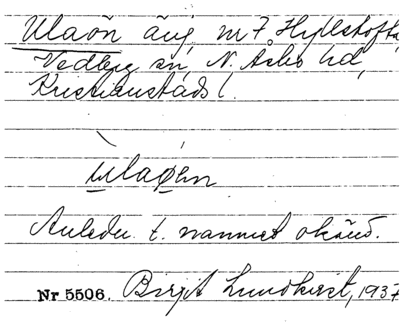 Ulaön äng nr 7 Hyllstofta
Vedby sn, N. Åsbo hd,
Kristianstads l.
ùlaøen
Anledn. t. namnet okänd.
Nr 5506. Birgit Lundkvist, 1937